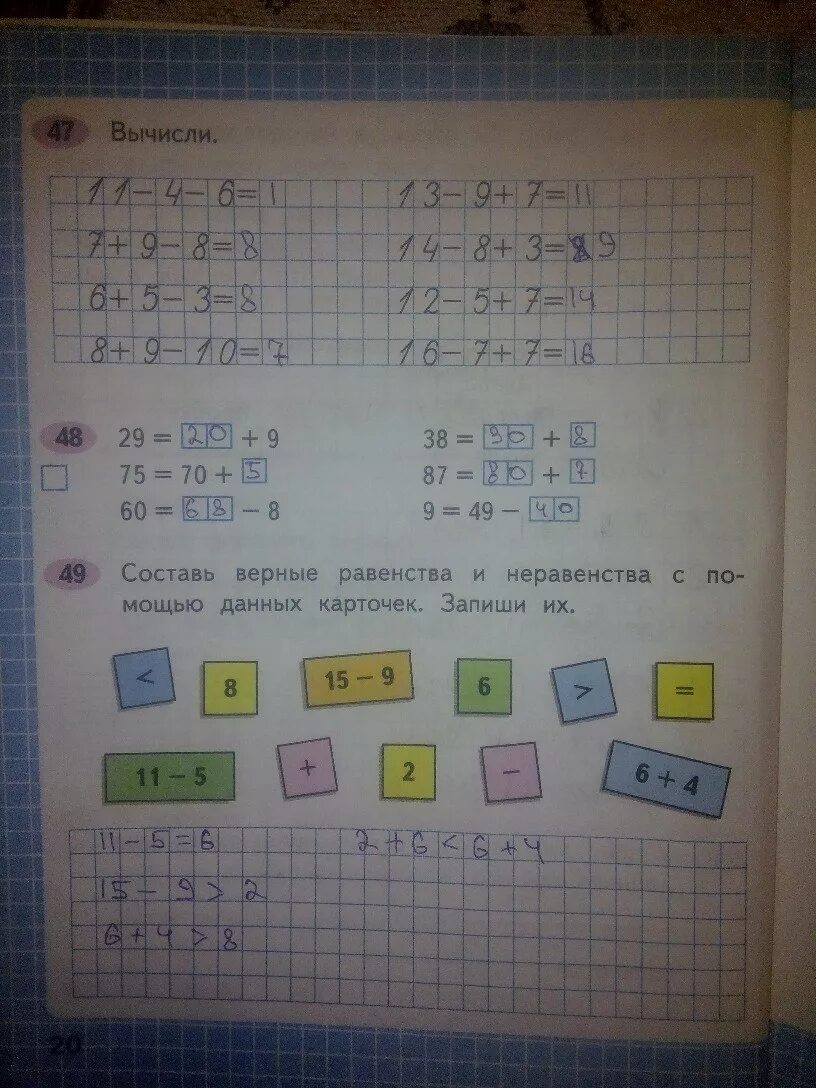 47 Вычисли.
11-4-6=1 13-9+7=11
7+9-8=8 14-8+3=9
6+5-3=8 12-5+7=14
8+9-10=7 16-7+7=16
48 29 = 20 + 9 38 = 30 + 8
75 = 70 + 5 87 = 80 + 7
60 = 68 - 8 9 = 49 - 40
49 Составь верные равенства и неравенства с по-
мощью данных карточек. Запиши их.
< 8 15 - 9 6 > =
11 - 5 + 2 - 6 + 4
11-5=6 2+6<6+4
15-9>2
6+4>8
20